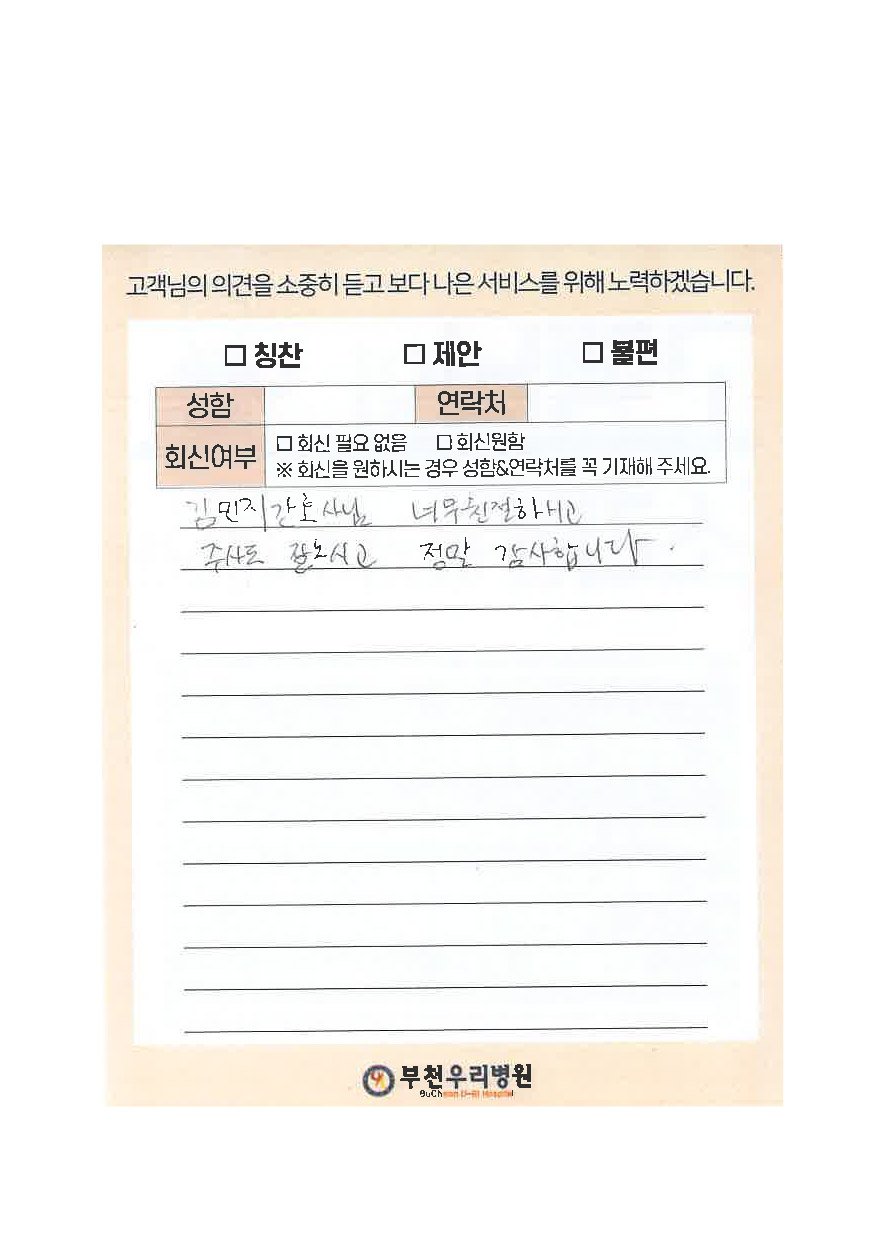 고객님의 의견을 소중히 듣고 보다 나은 서비스를 위해 노력하겠습니다.
□ 칭찬 □ 제안 □ 불편
성함 연락처
회신여부 □ 회신 필요 없음 □ 회신원함
※ 회신을 원하시는 경우 성함&연락처를 꼭 기재해 주세요.
김민지간호사님 너무친절하시고
주사도 잘노시고 정말 감사합니다.
부천우리병원
BuCheon U-Ri Hospital